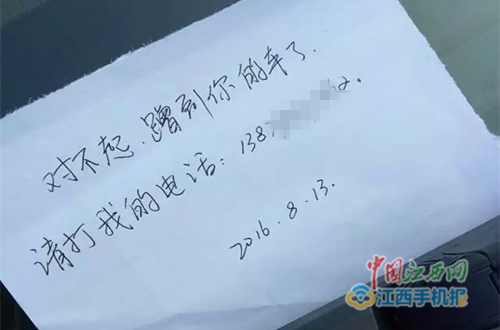 对不起.蹭到你的车了.
请打我的电话：138
2016.8.13.
中国江西网
江西手机报